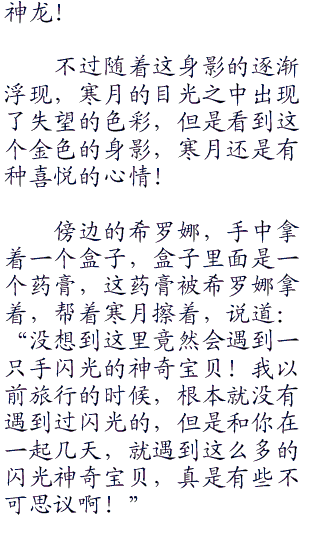 神龙！
不过随着这身影的逐渐
浮现，寒月的目光之中出现
了失望的色彩，但是看到这
个金色的身影，寒月还是有
种喜悦的心情！
傍边的希罗娜，手中拿
着一个盒子，盒子里面是一
个药膏，这药膏被希罗娜拿
着，帮着寒月擦着，说道：
“没想到这里竟然会遇到一
只手闪光的神奇宝贝！我以
前旅行的时候，根本就没有
遇到过闪光的，但是和你在
一起几天，就遇到这么多的
闪光神奇宝贝，真是有些不
可思议啊！”